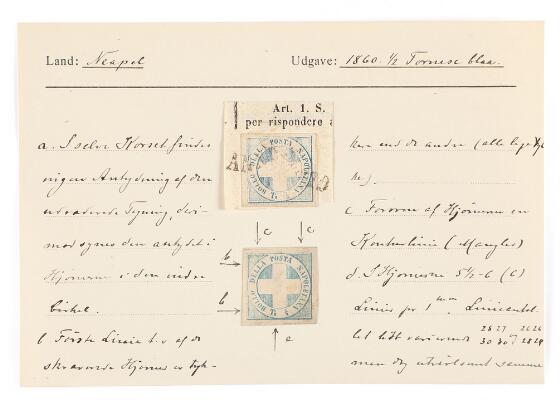 Land: Neapel
Udgave: 1860. ½ Tornese blaa.
Art. 1. S.
per rispondere a
BOLLO DELLA POSTA NAPOLETANA
a. I selve Korset findes
ingen Antydning af den
Tegning, der
imod synes den antydet i
Hjørnerne i den indre
Cirkel.
b Første Linie t.v. af de
skraverede Hjørner er tyk-
c
c
b
BOLLO DELLA POSTA NAPOLETANA
b
e
kere end de andre (alle lige
c Foroven af Hjørnerne en
Konturlinie (Mangler)
d. I Hjørnerne 5½-6 (6)
Linier pr 1 mm. Linieantal-
let lidt varierende
men dog samme